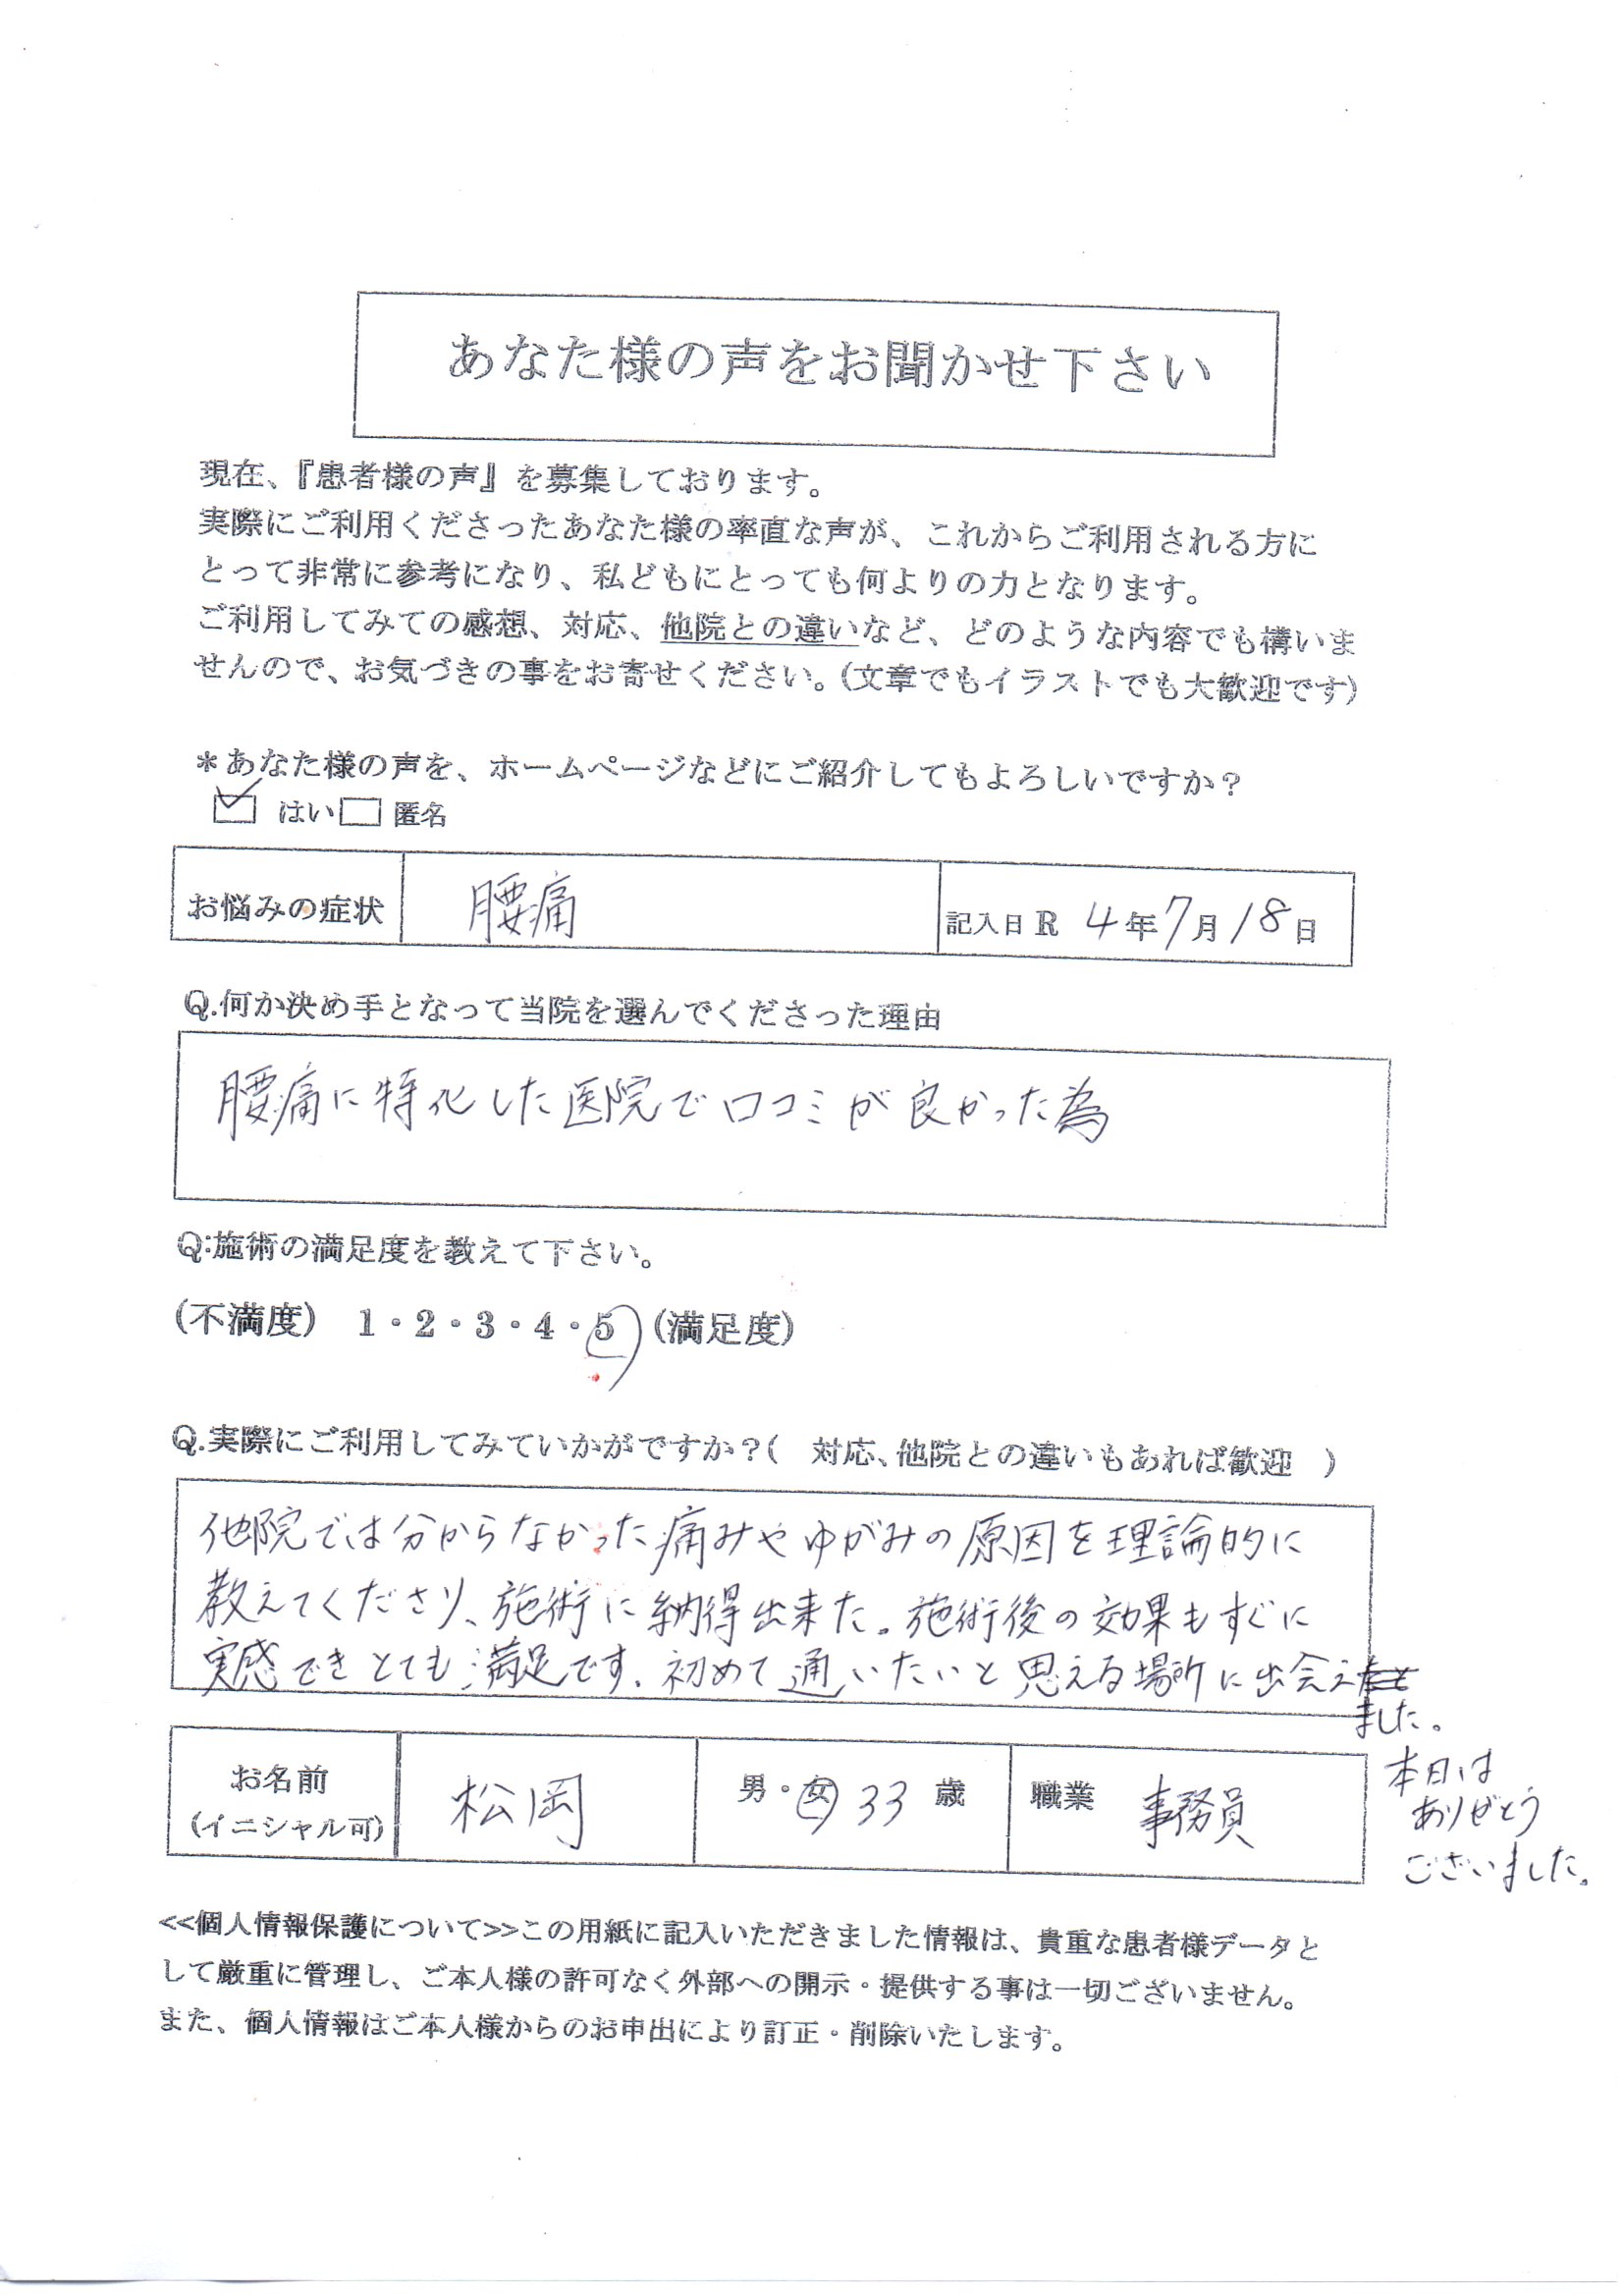 あなた様の声をお聞かせ下さい
現在、『患者様の声』を募集しております。
実際にご利用くださったあなた様の率直な声が、これからご利用される方に
とって非常に参考になり、私どもにとっても何よりの力となります。
ご利用してみての感想、対応、他院との違いなど、どのような内容でも構いま
せんので、お気づきの事をお寄せください。(文章でもイラストでも大歓迎です)
*あなた様の声を、ホームページなどにご紹介してもよろしいですか?
はい 匿名
お悩みの症状 腰痛 記入日 R 4年7月18日
Q.何か決め手となって当院を選んでくださった理由
腰痛に特化した医院で口コミが良かった為
Q:施術の満足度を教えて下さい。
(不満度) 1・2・3・4・5 (満足度)
Q.実際にご利用してみていかがですか?( 対応、他院との違いもあれば歓迎 )
他院では分からなかった痛みやゆがみの原因を理論的に
教えてくださり、施術に納得出来た。施術後の効果もすぐに
実感できとても満足です。初めて通いたいと思える場所に出会え
ました。
本日は
ありがとう
ございました。
お名前 松岡 男・女 33 歳 職業 事務員
(イニシャル可)
<<個人情報保護について>>この用紙に記入いただきました情報は、貴重な患者様データと
して厳重に管理し、ご本人様の許可なく外部への開示・提供する事は一切ございません。
また、個人情報はご本人様からのお申出により訂正・削除いたします。